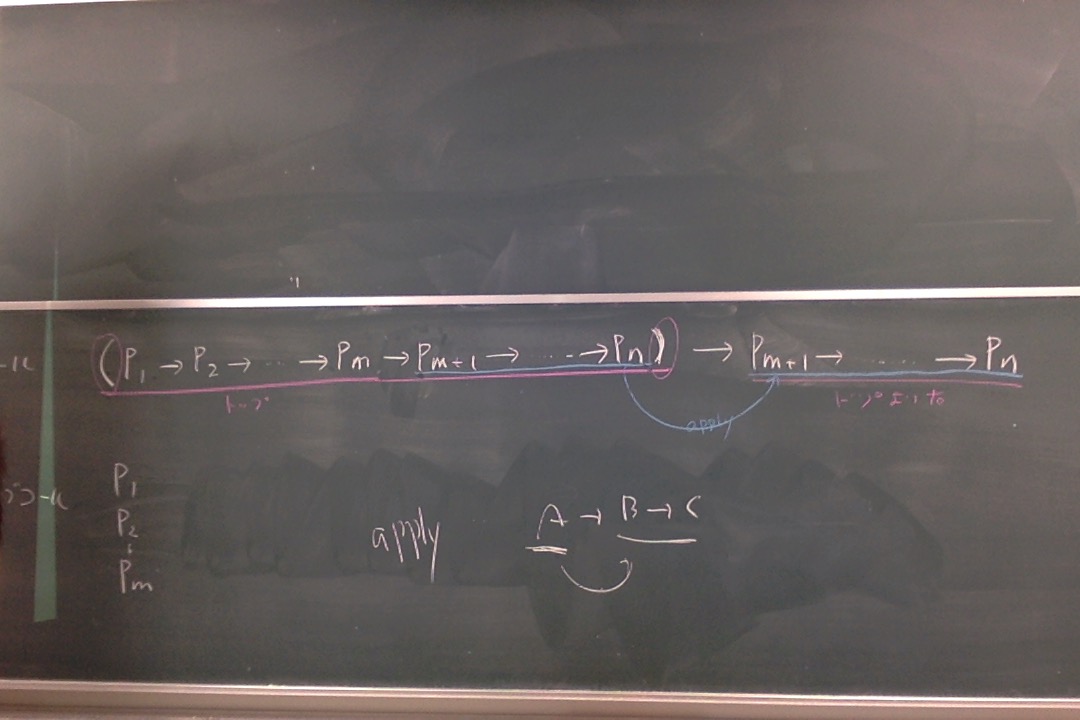 (P₁ → P₂ → … → Pm → Pm+1 → … → Pn) → Pm+1 → … → Pn
apply
P₁
P₂
⋮
Pm
apply A → B → C